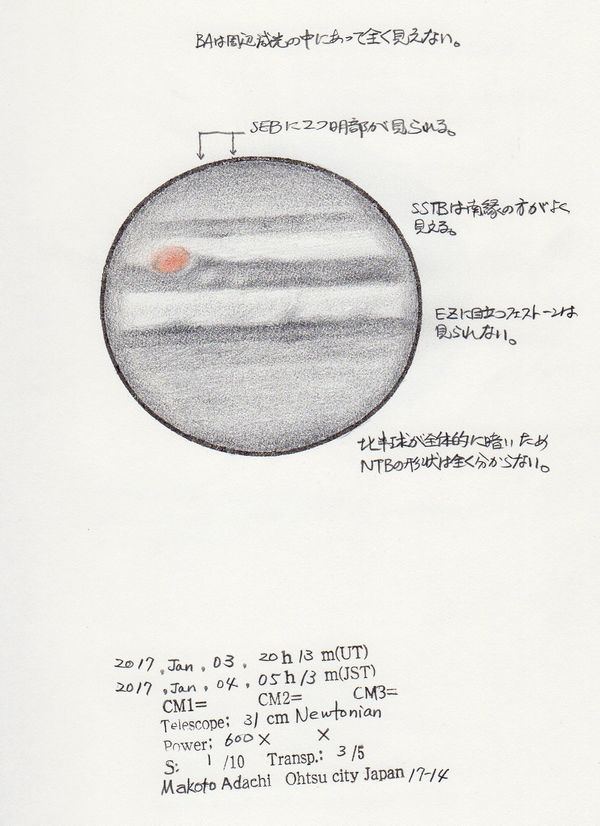 BAは周辺減光の中にあって全く見えない。
SEBに2つ明部が見られる。
SSTBは南縁の方がよく
見える。
EZに目立つフェストーンは
見られない。
北半球が全体的に暗いため
NTBの形状は全く分からない。
2017, Jan, 03, 20h 13 m(UT)
2017, Jan, 04, 05h 13 m(JST)
CM1= CM2= CM3=
Telescope; 31 cm Newtonian
Power; 600× ×
S: 1 /10 Transp.: 3 /5
Makoto Adachi Ohtsu city Japan 17-14